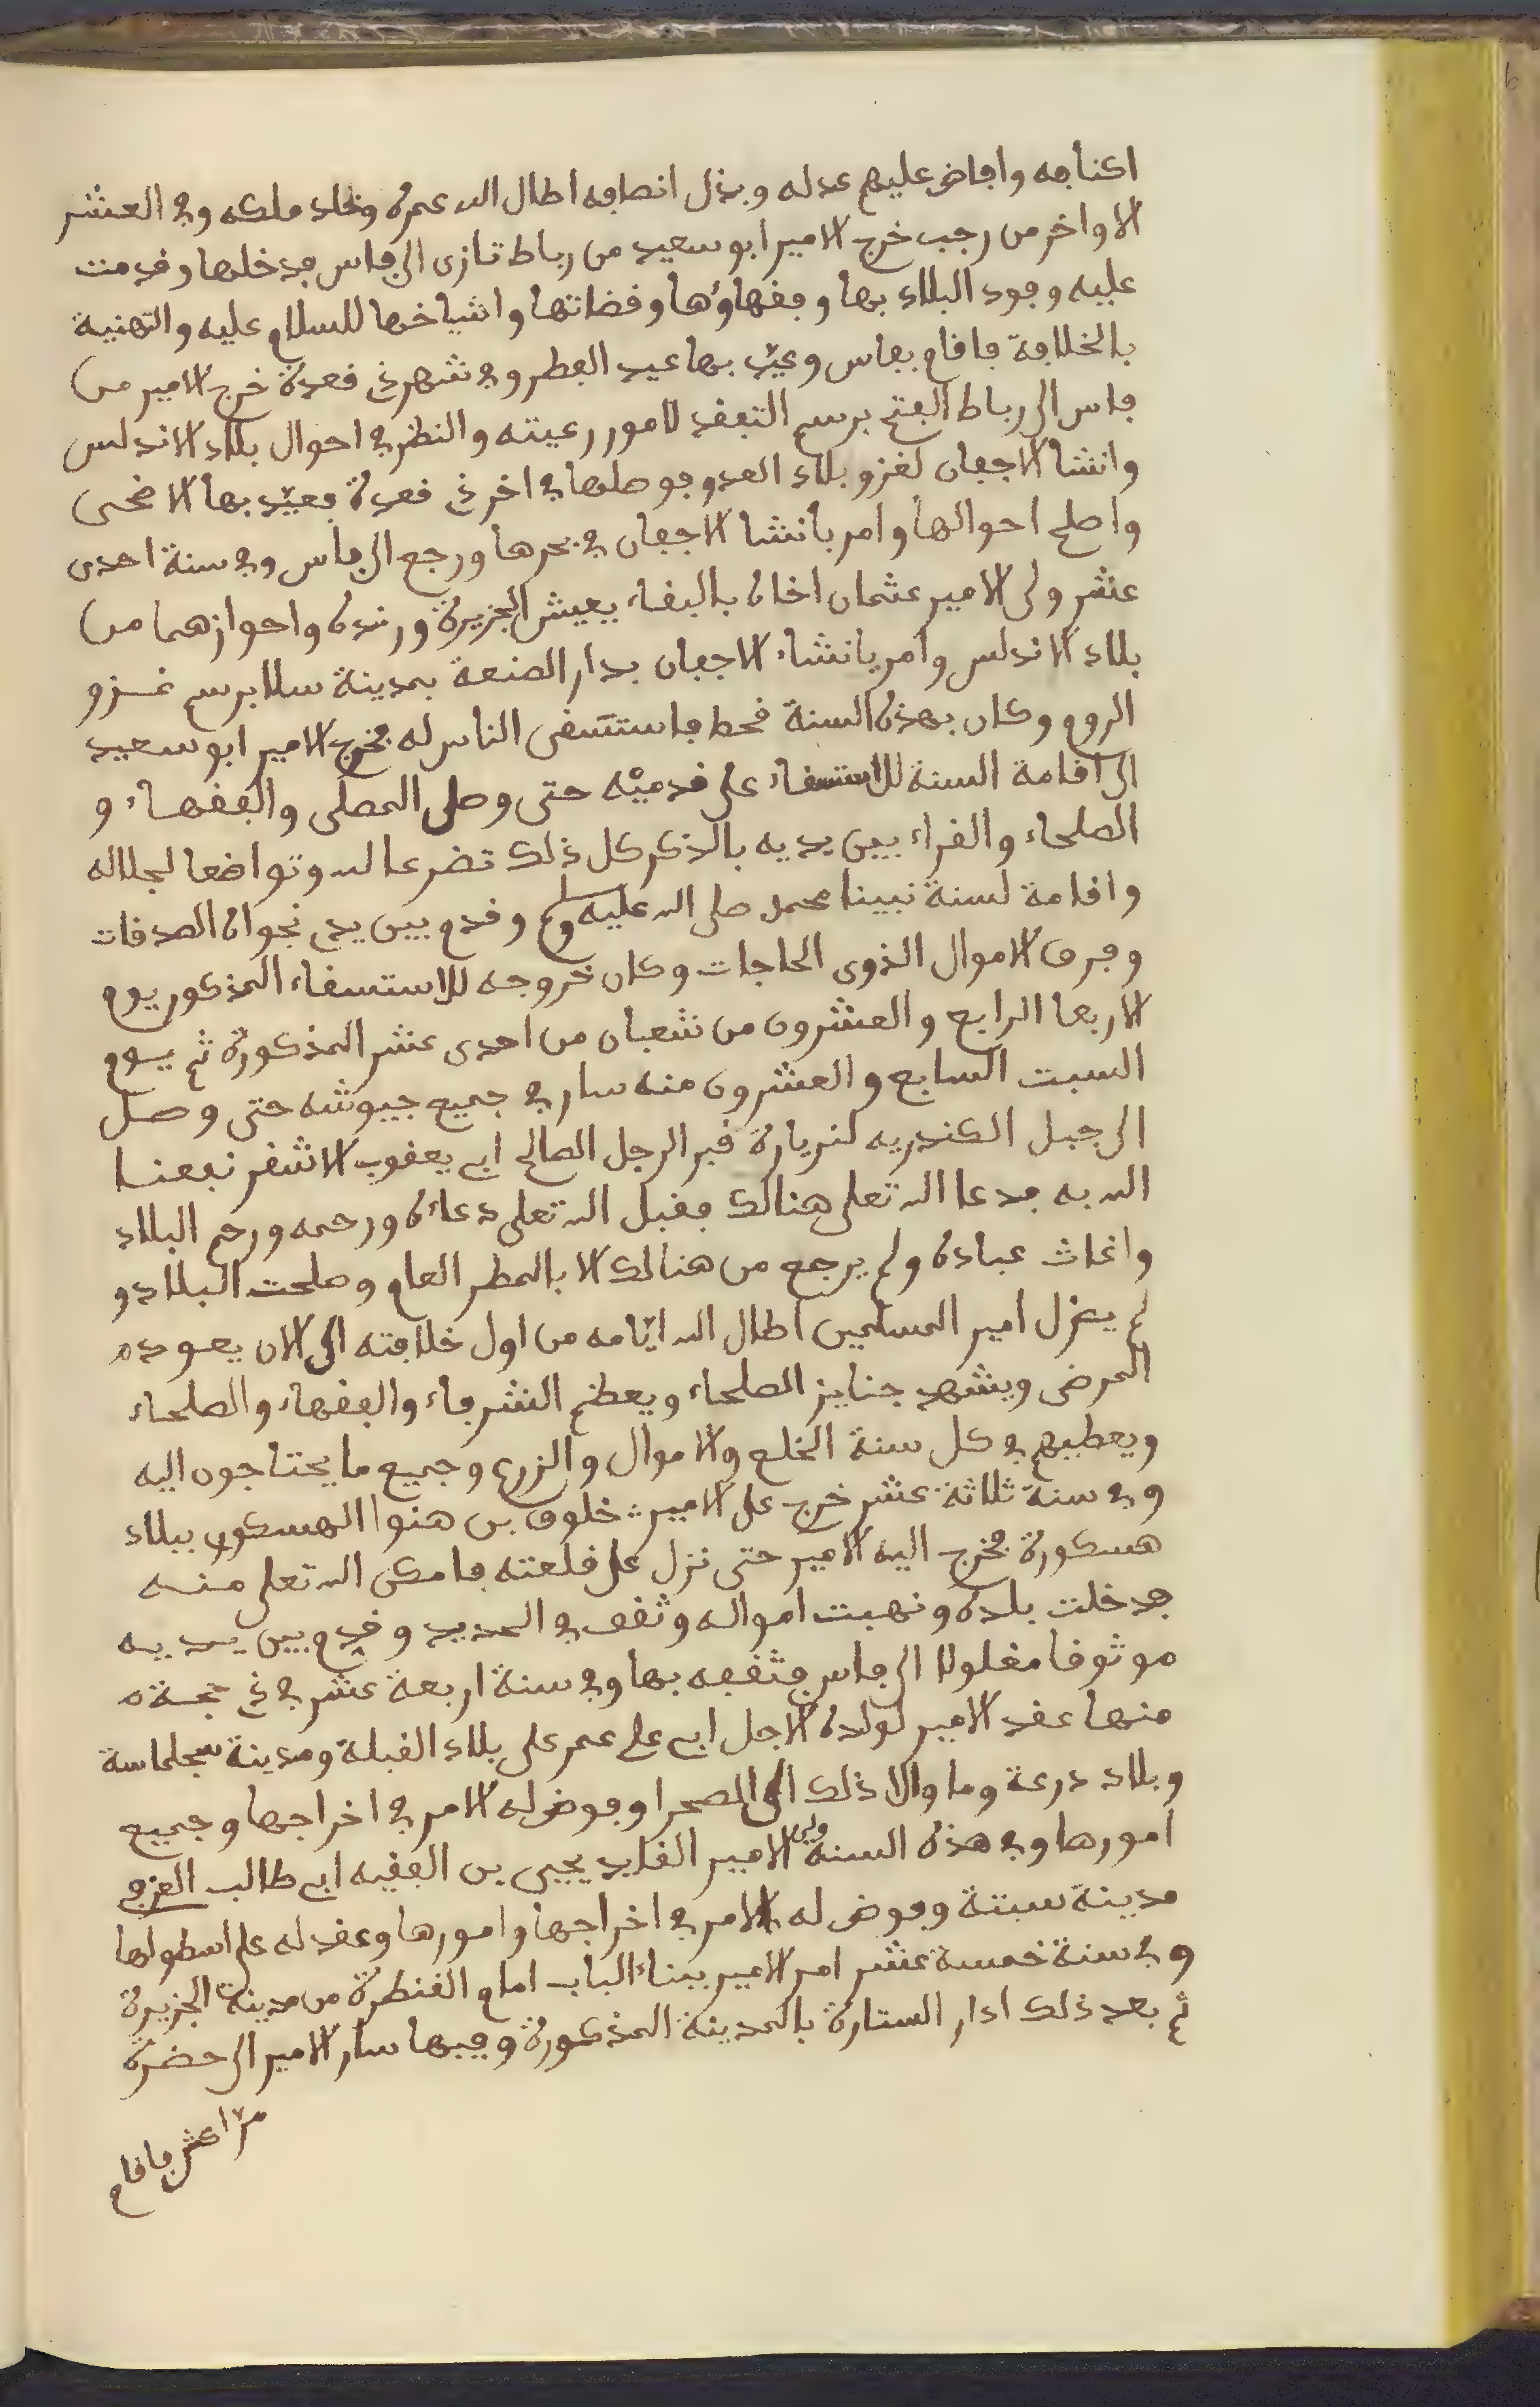 اكنافه وافاض عليهم عدله وبذل انصافه اطال الله عمره وخلد ملكه وفي العشر
الاواخر من رجب خرج الامير ابو سعيد من رباط تازى الى فاس فدخلها وقدمت
عليه وفود البلاد بها وفقهاؤها وقضاتها واشياخها للسلام عليه والتهنية
بالخلافة فاقام بفاس وعيّد بها عيد الفطر وفي شهر ذي قعدة خرج الامير من
فاس الى رباط الفتح برسم التفقد لامور رعيته والنظر في احوال بلاد الاندلس
وانشا الاجفان لغزو بلاد العدو فوصلها في اخر ذي قعدة فعيّد بها الاضحى
واصلح احوالها وامر بانشا الاجفان في بحرها ورجع الى فاس وفي سنة احدى
عشر ولى الامير عثمان اخاه باالبقاء يعيش الجزيرة ورندة واحوازهما من
بلاد الاندلس وامر بانشاء الاجفان بدار الصنعة بمدينة سلا برسم غزو
الروم وكان بهذه السنة قحط فاستسقى الناس له فخرج الامير ابو سعيد
الى اقامة السنة للاستسقاء على قدميْه حتى وصل المصلى والفقهاء و
الصلحاء والقراء بين يديه بالذكر كل ذلك تضرعا لله وتواضعا لجلاله
واقامة لسنة نبينا محمد صلى الله عليه وسلم وقدم بين يدي نجواه الصدقات
وفرق الاموال الذوى الحاجات وكان خروجه للاستسقاء المذكور يوم
الاربعا الرابع والعشرون من شعبان من احدى عشر المذكورة ثم يوم
السبت السابع والعشرون منه سار في جميع جيوشه حتى وصل
الى جبل الكندريه لزيارة قبر الرجل الصالح ابي يعقوب الاشقر نفعنا
الله به فدعا الله تعلى هنالك فقبل الله تعلى دعائه ورحمه ورحم البلاد
واغاث عباده ولم يرجع من هنالك الا بالمطر العام وصلحت البلاد و
لم يزل امير المسلمين اطال الله ايّامه من اول خلافته الى الان يعوده
المرضى ويشهد جنايز الصلحاء ويعظم الشرفاء والفقهاء والصلحاء
ويعطيهم في كل سنة الخلع والاموال والزرع وجميع ما يحتاجون اليه
وفي سنة ثلاثة عشر خرج على الامير خلوف بن هنوا الهسكوري ببلاد
هسكورة فخرج اليه الامير حتى نزل على قلعته فامكن الله تعلى منه
فدخلت بلده ونهبت امواله وثقف في الحديد وقدم بين يديه
موثوقا مغلولا الى فاس فثقفه بها وفي سنة اربعة عشر في ذي حجة
منها عقد الامير لولده الاجل ابي علي عمر على بلاد القبلة ومدينة سجلماسة
وبلاد درعة وما والا ذلك الى الصحرا وفوض له الامر في اخراجها وجميع
امورها وفي هذه السنة ولى الامير القايد يحيى بن الفقيه ابي طالب العزفي
مدينة سبتة وفوض له الامر في اخراجها وامورها وعقد له على اسطولها
وفي سنة خمسة عشر امر الامير ببناء الباب امام القنطرة من مدينة الجزيرة
ثم بعد ذلك ادار الستارة بالمدينة المذكورة وفيها سار الامير الى حضرة
مراكش فاقام